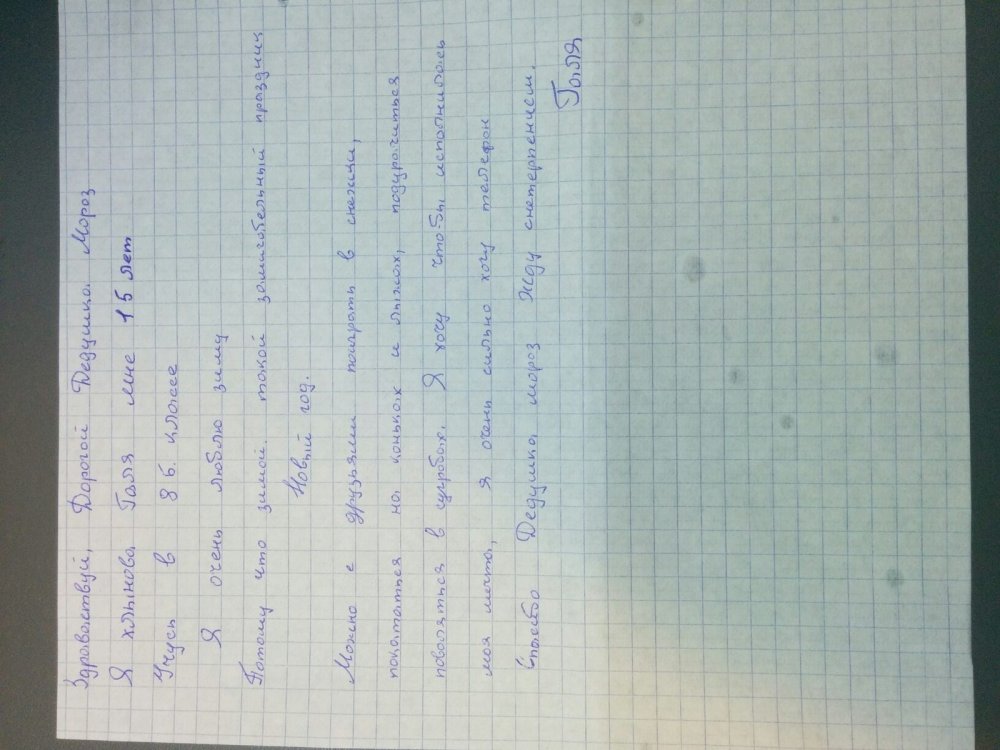 Здравствуй, Дорогой Дедушка Мороз
Я хлынова Галя мне 15 лет
Учусь в 8 б. классе
Я очень люблю зиму
Потому что зимой такой замигательный праздник
Новый год.
Можно с друзьями поиграть в снежки,
покататься на коньках и лыжах, подурачиться
поваляться в сугробах. Я хочу что-бы исполнилось
моя мечта, я очень сильно хочу телефон
Спасибо Дедушка мороз Жду снетерпением.
Галя